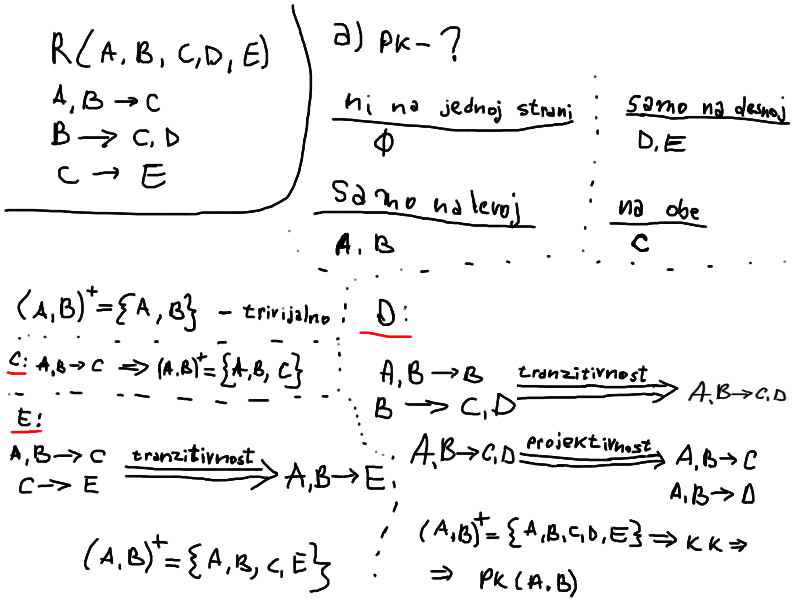 R(A, B, C, D, E)
A, B → C
B → C, D
C → E
a) PK - ?
ni na jednoj strani
Φ
samo na desnoj
D, E
Samo na levoj
A, B
na obe
C
(A, B)⁺ = {A, B} - trivijalno
C: A, B → C ⇒ (A, B)⁺ = {A, B, C}
E:
A, B → C
C → E
tranzitivnost
A, B → E
(A, B)⁺ = {A, B, C, E}
D:
A, B → B
B → C, D
tranzitivnost
A, B → C, D
A, B → C, D projektivnost A, B → C
A, B → D
(A, B)⁺ = {A, B, C, D, E} ⇒ KK ⇒
⇒ PK(A, B)